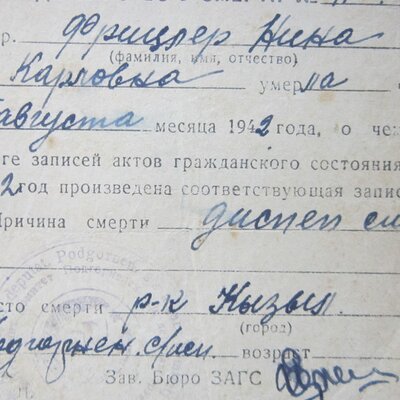 гр. Фрицлер Нина
(фамилия, имя, отчество)
Карловна умерла
августа месяца 1942 года, о чем
ге записей актов гражданского состояния
2 год произведена соответствующая запис
Причина смерти диспепсия
сто смерти р-к Кызыл.
(город)
возраст
Зав. Бюро ЗАГС